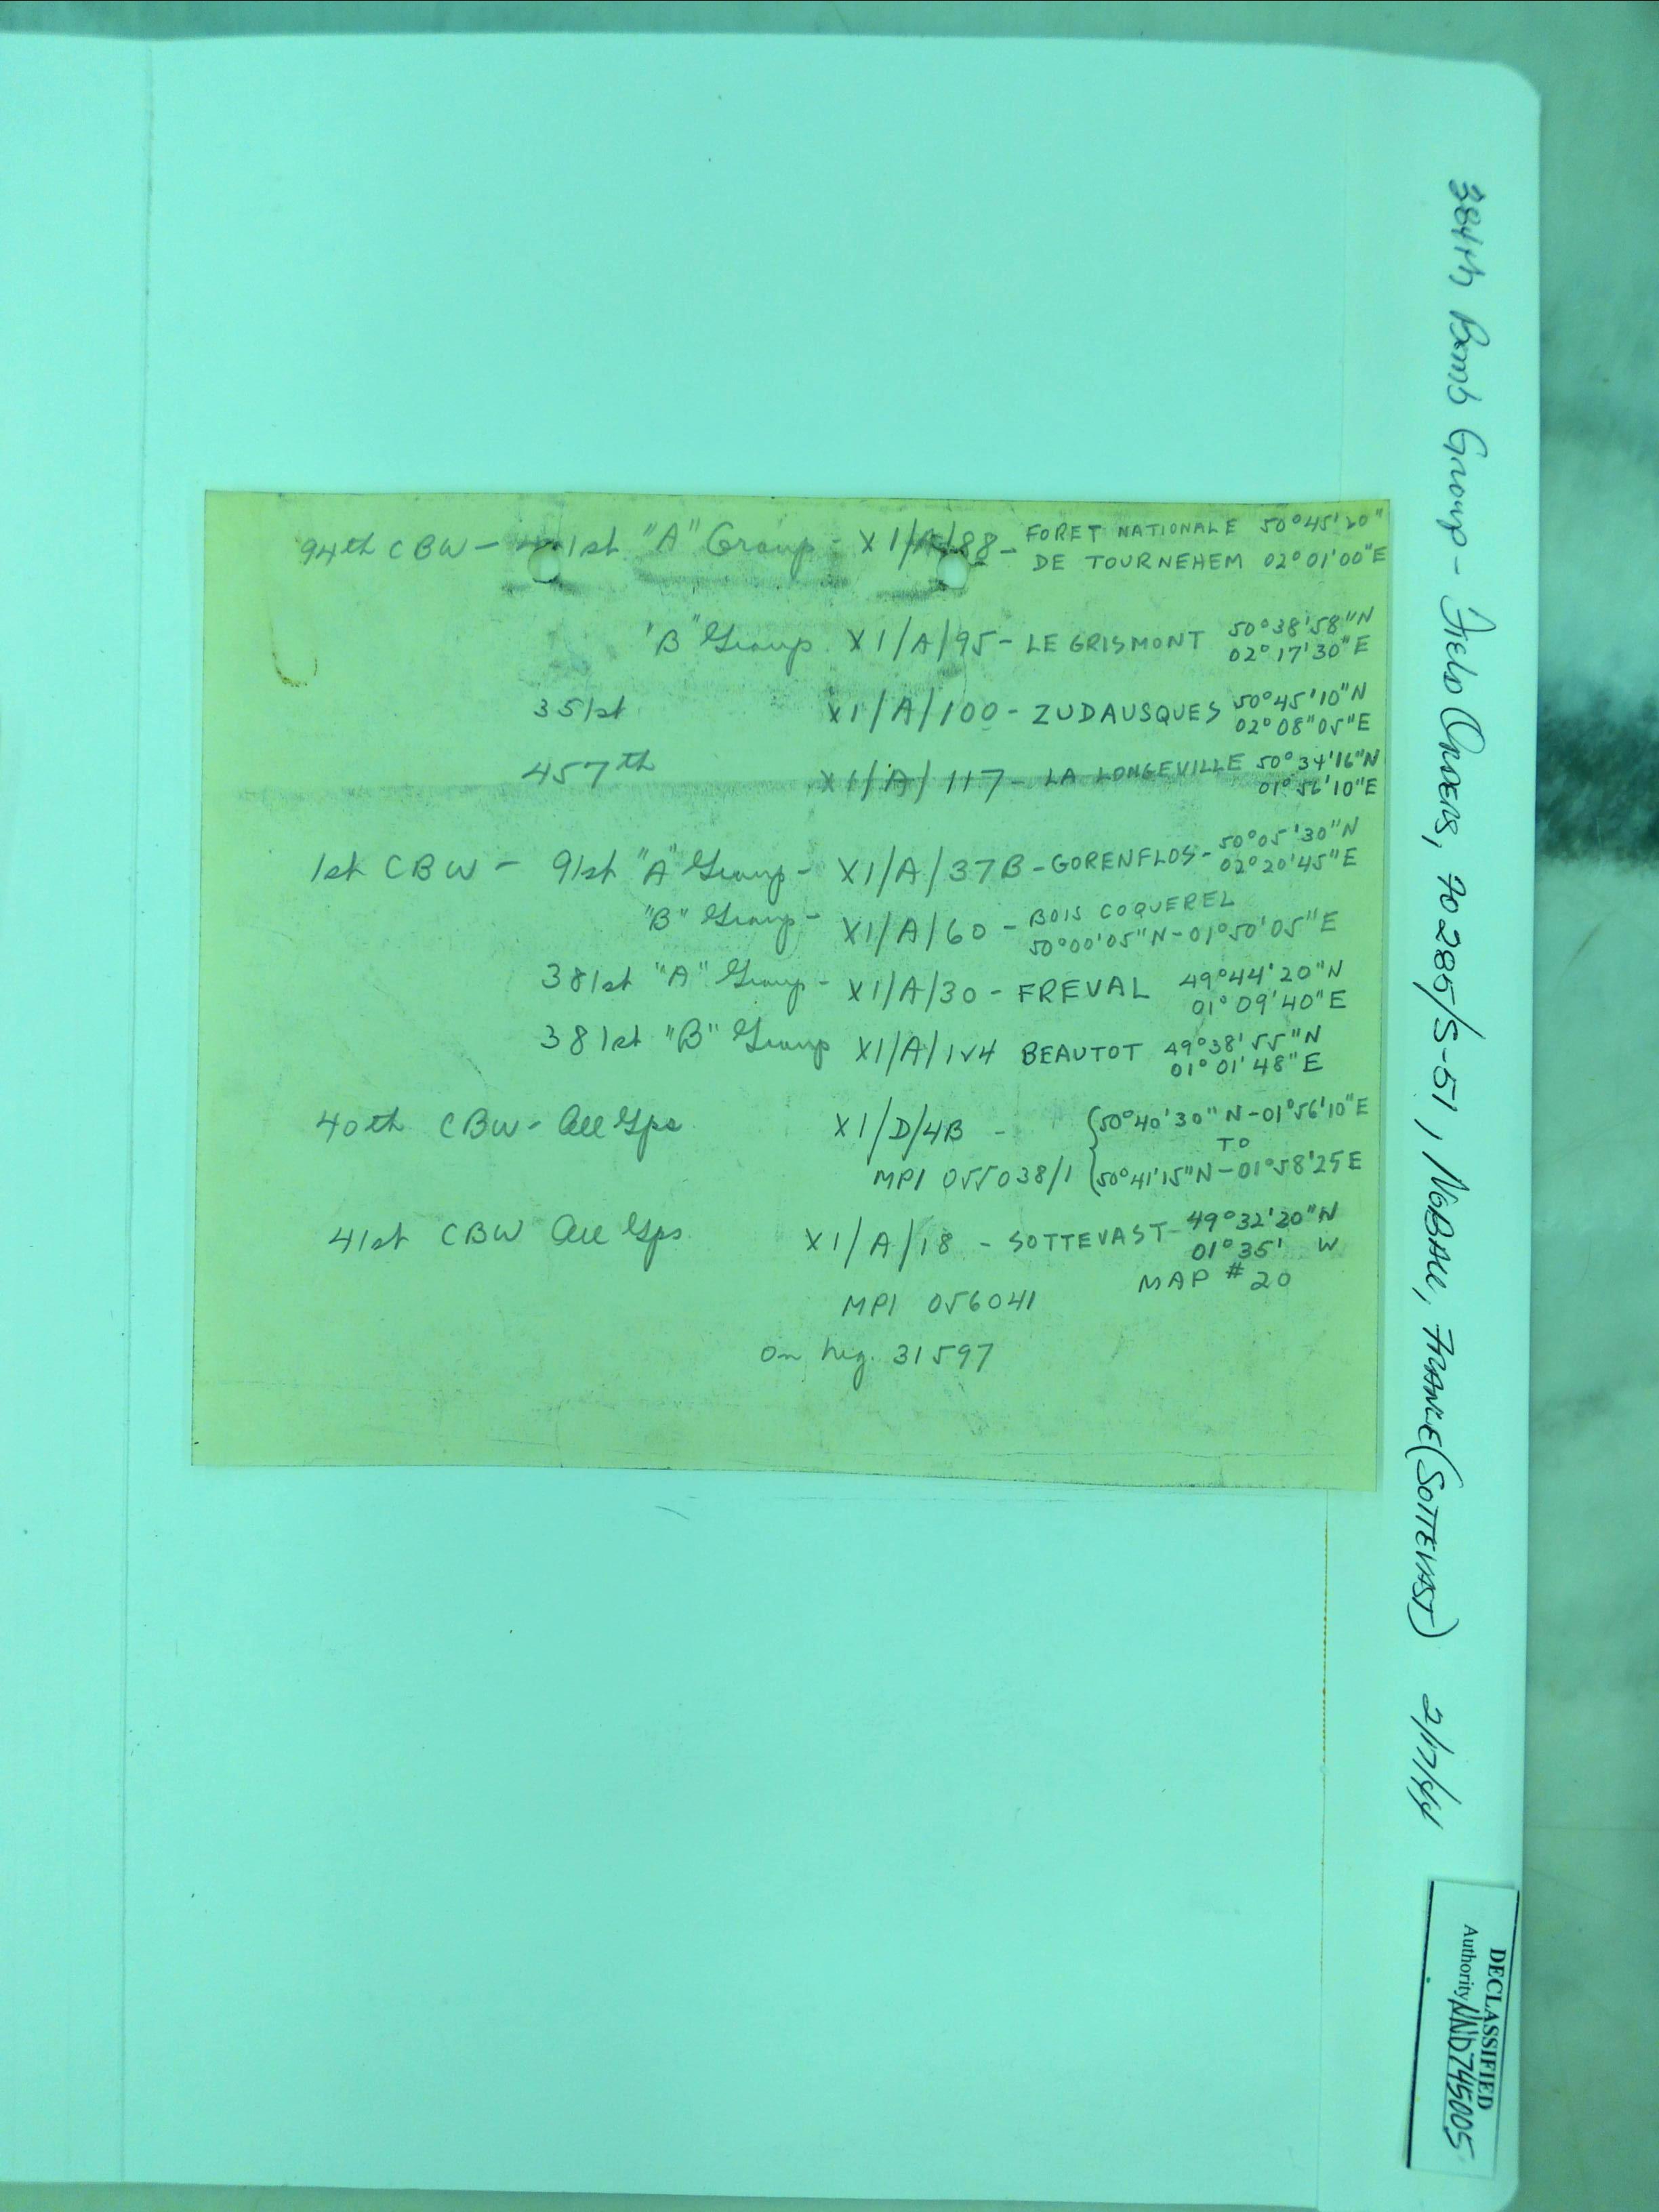 94th CBW - 401st "A" Group - X1/A/88 - FORET NATIONALE 50°45'20"
DE TOURNEHEM 02°01'00"E
"B" Group X1/A/95 - LE GRISMONT 50°38'58"N
02°17'30"E
351st X1/A/100 - ZUDAUSQUES 50°45'10"N
02°08"05"E
457th X1/A/117 - LA LONGEVILLE 50°34'16"N
01°56'10"E
1st CBW - 91st "A" Group - X1/A/37B - GORENFLOS - 50°05'30"N
02°20'45"E
"B" Group - X1/A/60 - BOIS COQUEREL
50°00'05"N - 01°50'05"E
381st "A" Group - X1/A/30 - FREVAL 49°44'20"N
01°09'40"E
381st "B" Group X1/A/124 BEAUTOT 49°38'55"N
01°01'48"E
40th CBW - All Gps X1/D/4B - 50°40'30"N - 01°56'10"E
TO
MPI 055038/1 50°41'15"N - 01°58'25E
41st CBW All Gps. X1/A/18 - SOTTEVAST - 49°32'20"N
01°35' W
MAP # 20
MPI 056041
On neg. 31597
384th Bomb Group - Field Orders, FO 285/S-51, NOBALL, FRANCE (SOTTEVAST) 2/17/44
DECLASSIFIED
Authority NND745005